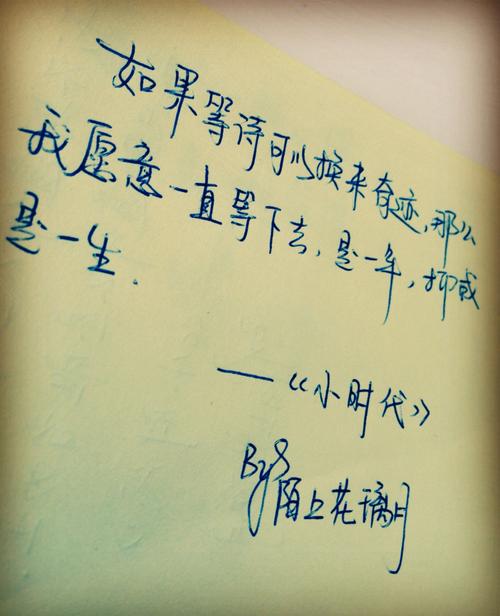 如果等诗可以换来奇迹，那么
我愿意一直等下去，是一年，抑或
是一生.
——《小时代》
By 陌上花璃月